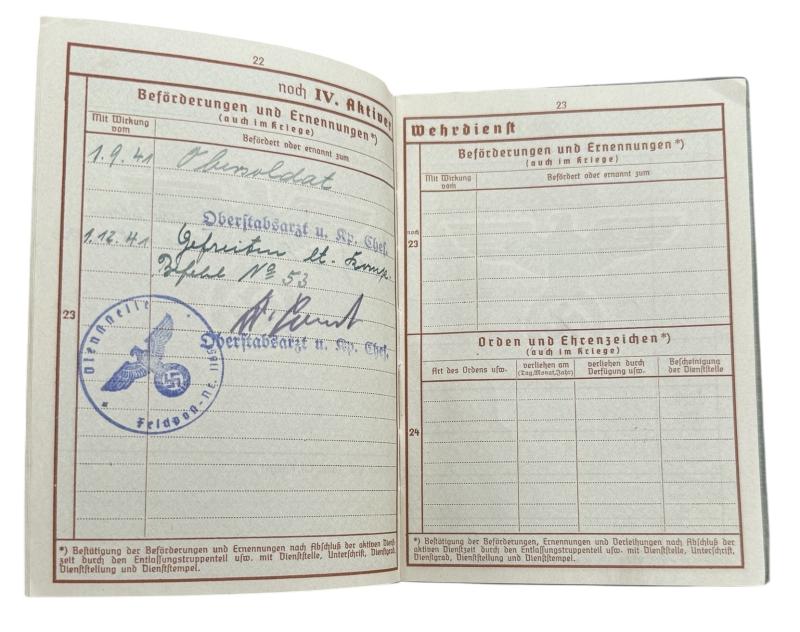 22
noch IV. Aktiver
Beförderungen und Ernennungen*)
(auch im Kriege)
Mit Wirkung vom
Befördert oder ernannt zum
1.9.41 Obersoldat
Oberstabsarzt u. Kp. Chef.
1.12.41 Gefreiten lt. Komp.
Befehl No 53
Oberstabsarzt u. Kp. Chef.
23
Dienststelle
Feldpost-Nr.
*) Bestätigung der Beförderungen und Ernennungen nach Abschluß der aktiven Dienst-
zeit durch den Entlassungstruppenteil usw. mit Dienststelle, Unterschrift, Dienstgrad,
Dienststellung und Dienststempel.
23
Wehrdienst
Beförderungen und Ernennungen*)
(auch im Kriege)
Mit Wirkung vom
Befördert oder ernannt zum
noch
23
Orden und Ehrenzeichen*)
(auch im Kriege)
Art des Ordens usw.
verliehen am
(Tag, Monat, Jahr)
verliehen durch
Verfügung usw.
Bescheinigung
der Dienststelle
24
*) Bestätigung der Beförderung, Ernennungen und Verleihungen nach Abschluß der
aktiven Dienstzeit durch den Entlassungstruppenteil usw. mit Dienststelle, Unterschrift,
Dienstgrad, Dienststellung und Dienststempel.